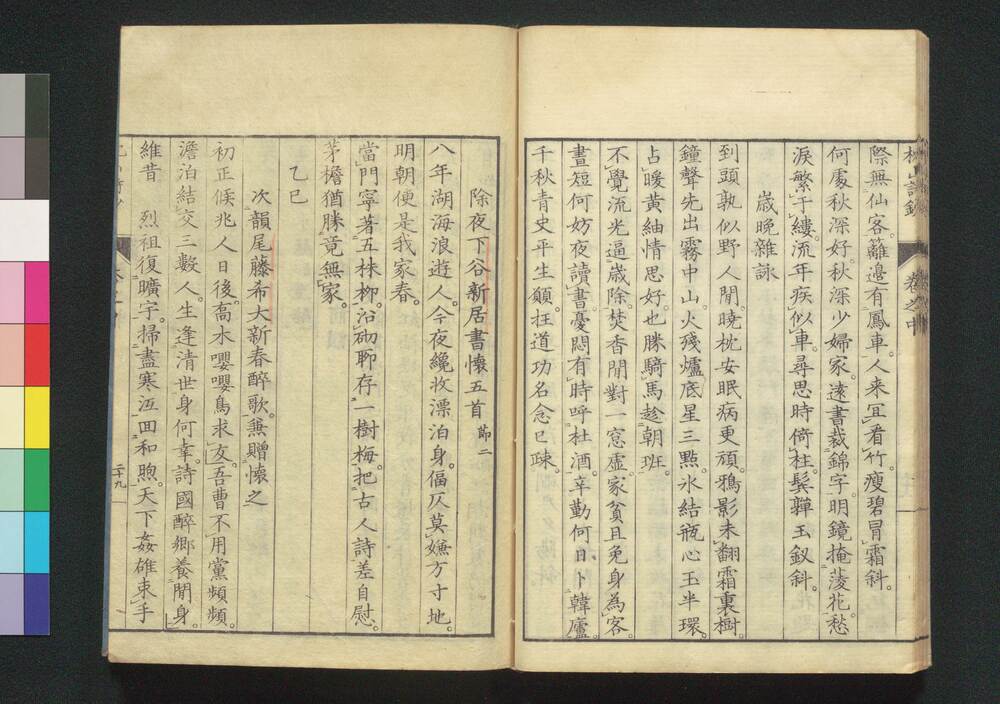 際無仙客。籬邉有鳳車。人来冝看竹。瘦碧冒霜斜。
何處秋深好。秋深少婦家。逺書裁錦字。明鏡掩菱花。愁
淚繁千縷。流年疾似車。尋思時倚柱。鬂嚲玉釵斜。
歳晩雜詠
到頭孰似野人閒。曉枕安眠病更頑。鴉影未翻霜裏樹
鐘聲先出霧中山。火殘爐底星三㸃。氷結瓶心玉半環。
占暖黄紬情思好。也勝騎馬趁朝班。
不覺流光逼歳除。焚香閒對一窓虚。家貧且免身為客。
晝短何妨夜讀書。憂悶有時呼杜酒。辛勤何日卜韓廬。
千秋青史平生願。抂道功名念已疎。
卷之中
除夜下谷新居書懷五首 節二
八年湖海浪遊人。今夜纔收漂泊身。偪仄莫嫌方寸地。
明朝便是我家春。
當門寧著五株柳。沿砌聊存一樹梅。把古人詩差自慰。
茅檐猶勝竟無家。
乙巳
次韻尾藤希大新春醉歌。兼贈懷之
初正候兆人日後。喬木嚶嚶鳥求友。吾曹不用黨頻頻。
澹泊結交三數人。生逢清世身何幸。詩國醉鄉養閒身。
維昔 烈祖復曠宇。掃盡寒沍回和煦。天下姦雄束手
二十九